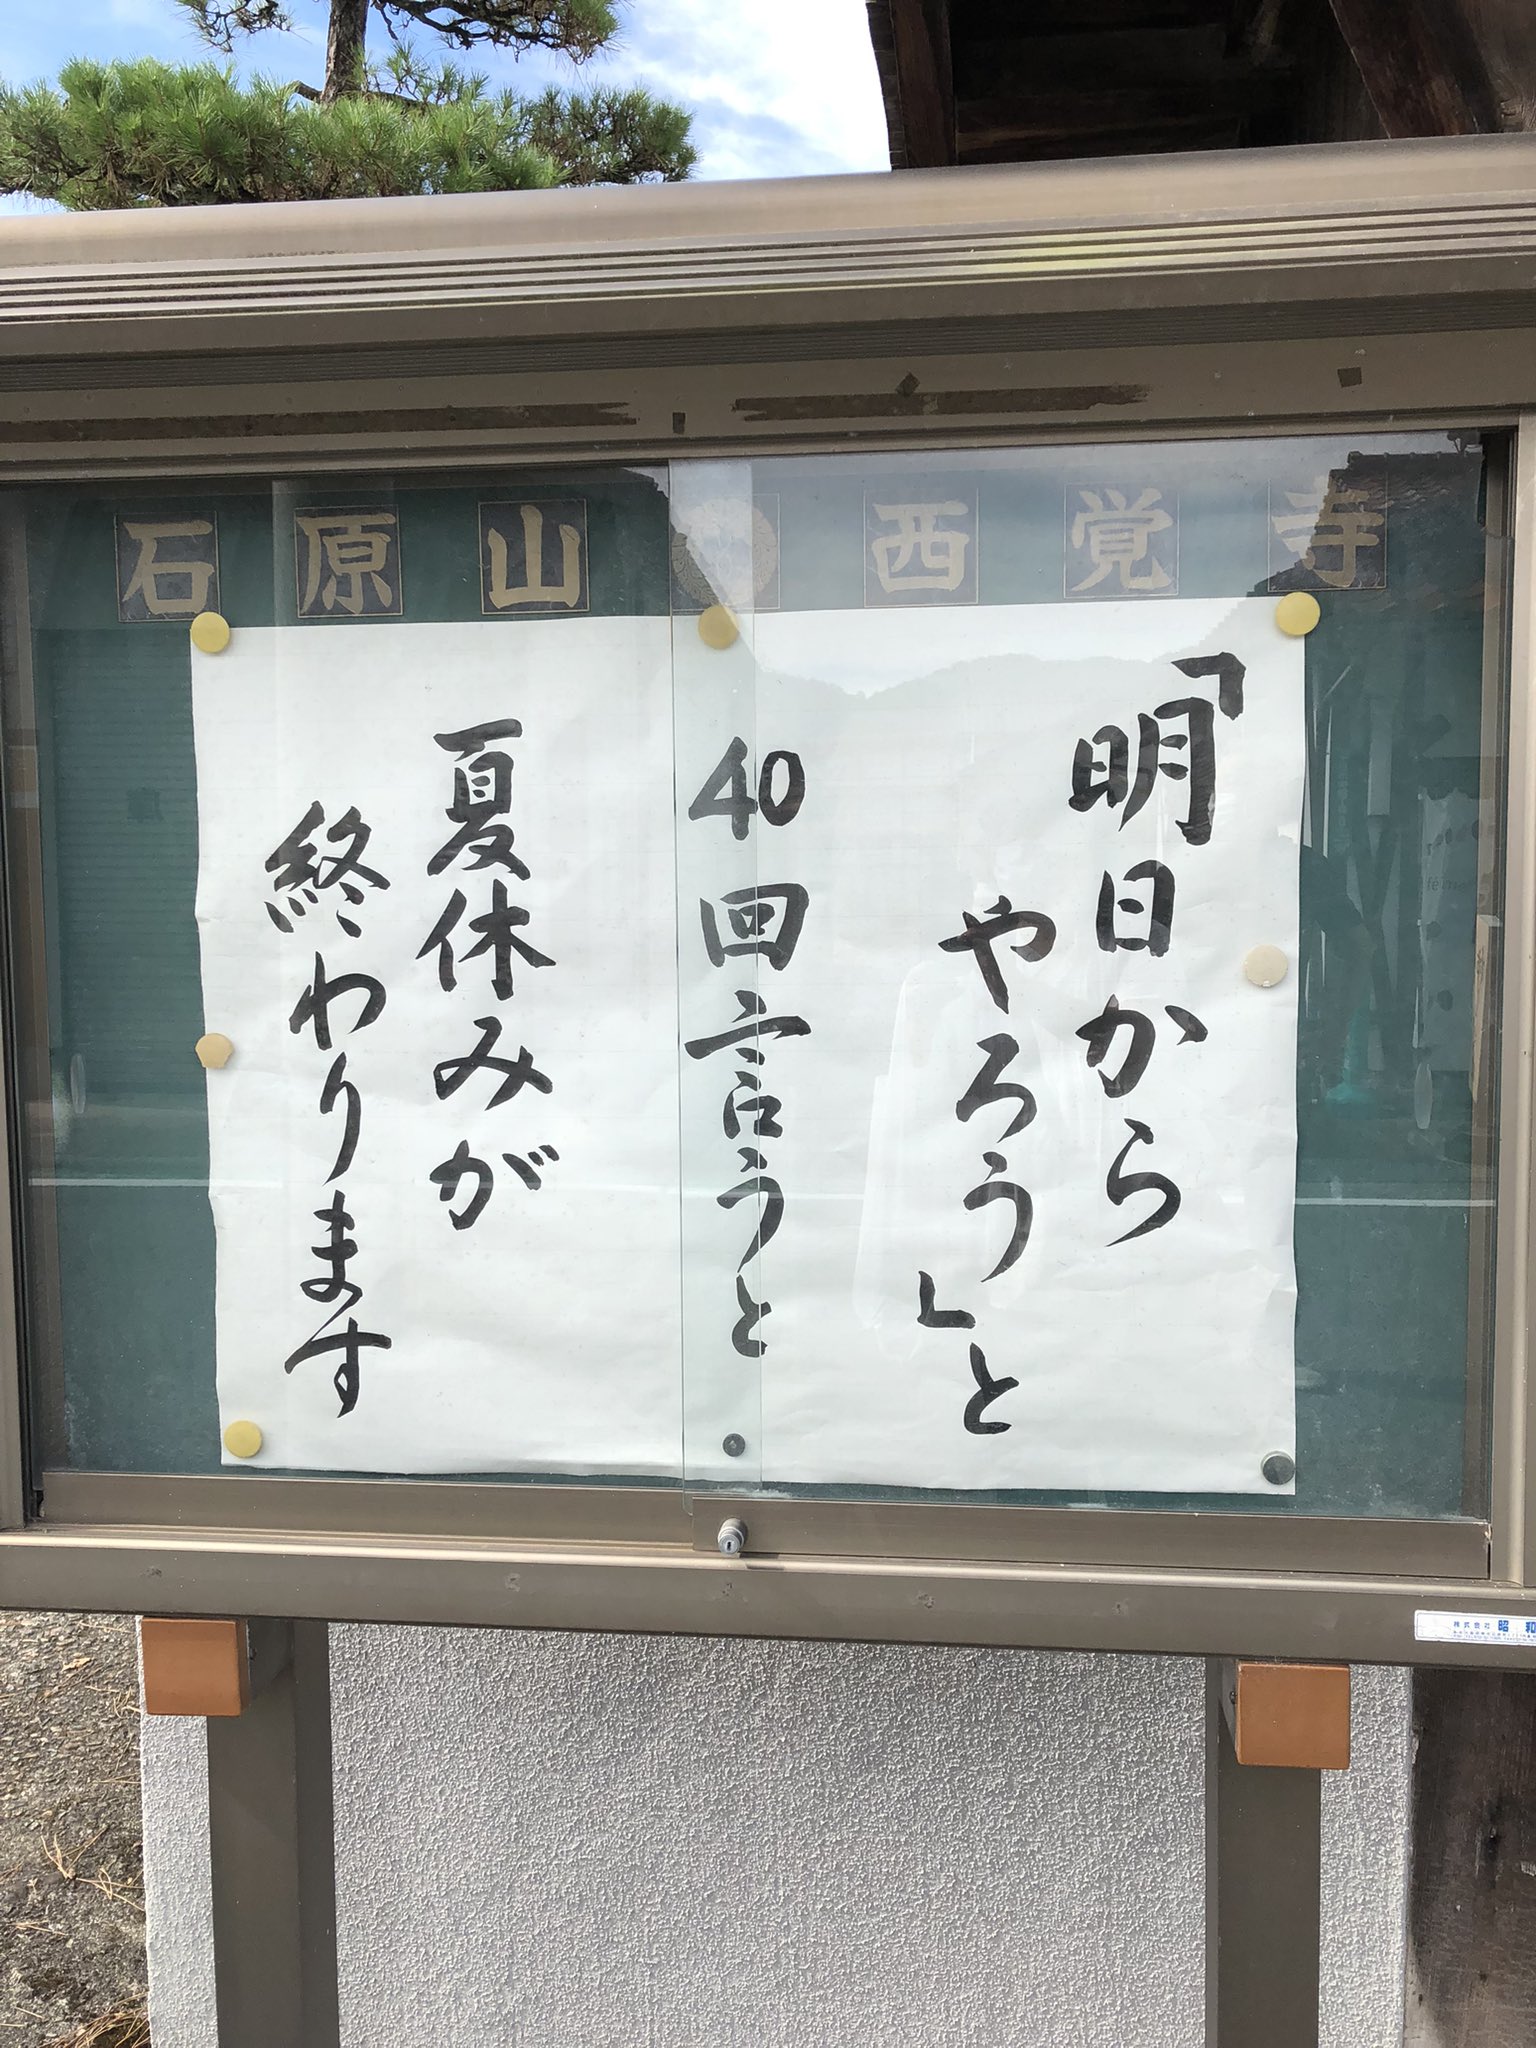 石原山 西覚寺
「明日から
やろう」と
40回言うと
夏休みが
終わります
株式会社 昭和